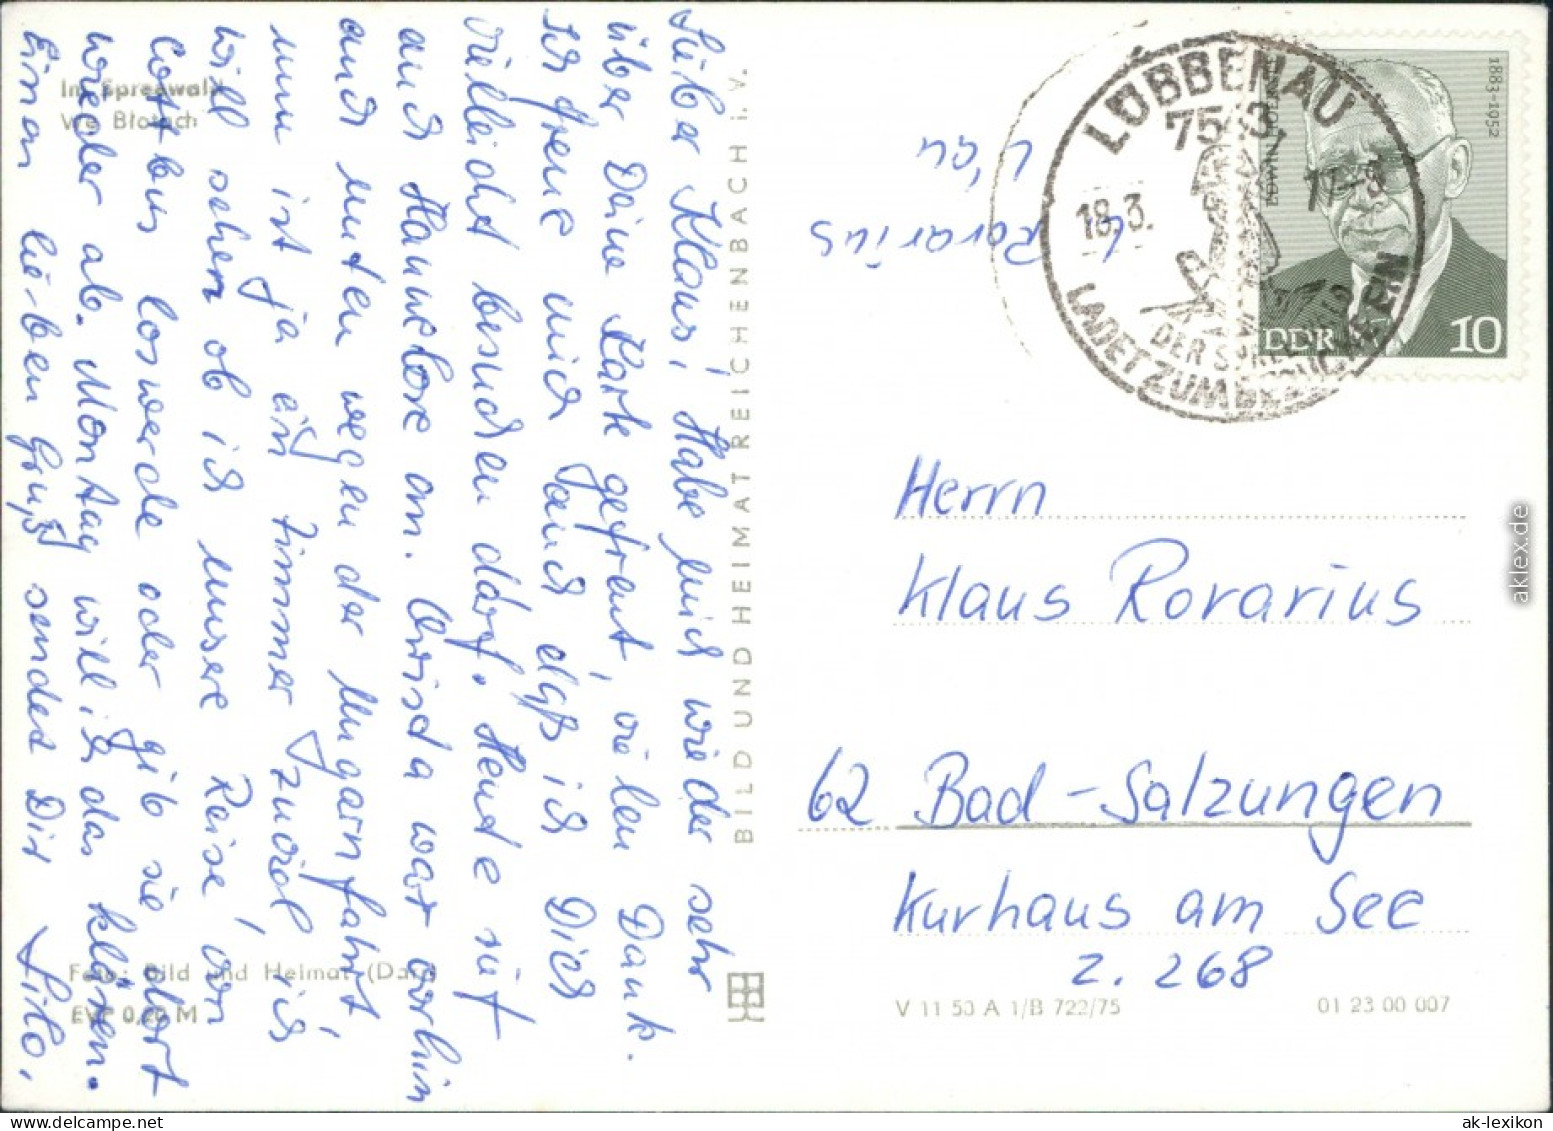 Im Spreewald
Wć Błotach
Lieber Klaus! Habe mich wieder sehr
über Deine Karte gefreut, vielen Dank.
Ich freue mich daß ich Dich
vielleicht besuchen darf. Heute rief
auch Hannelore an. Christa war vorhin
auch unten wegen der Ungarnfahrt,
nun ist ja ein Zimmer zuviel ich
will sehen ob ich unsere Reise von
Cottbus loswerde oder gib sie dort
wieder ab. Montag will ich das klären.
Einen lieben Gruß sendet Dir Lilo.
Foto: Bild und Heimat
EVP 0,20 M
BILD UND HEIMAT REICHENBACH i. V.
L'au
Rorarius
LÜBBENAU
7543
18.3.
DER SPREEWALD
LADET ZUM BESUCH EIN
1883-1952
EDWIN HOERNLE
DDR 10
Herrn
Klaus Rorarius
62 Bad-Salzungen
Kurhaus am See
Z. 268
V 11 50 A 1/B 722/75
01 23 00 007
aklex.de
ak-lexikon.com